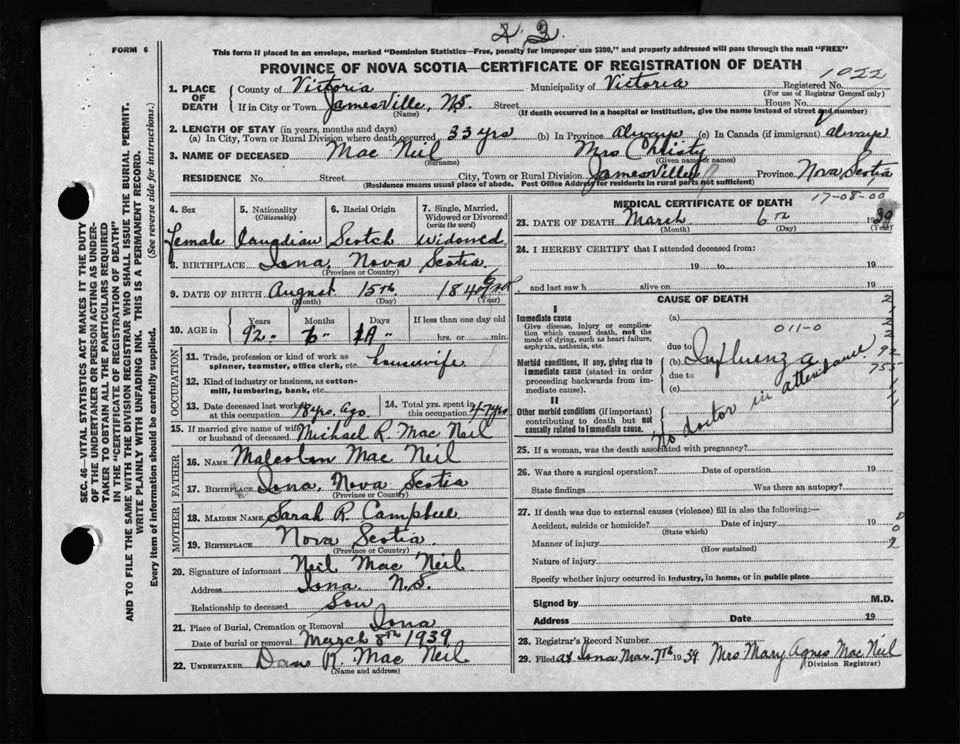 2. 2.
FORM 6
This form if placed in an envelope, marked "Dominion Statistics—Free, penalty for improper use $300," and properly addressed will pass through the mail "FREE"
PROVINCE OF NOVA SCOTIA—CERTIFICATE OF REGISTRATION OF DEATH
1022
1. PLACE OF DEATH
County of Victoria Municipality of Victoria Registered No.
(For use of Registrar General only)
If in City or Town Jamesville, N.S. Street House No.
(Name) (If death occurred in a hospital or institution, give the name instead of street and number)
2. LENGTH OF STAY (in years, months and days)
(a) In City, Town or Rural Division where death occurred 33 yrs (b) In Province always (c) In Canada (if immigrant) always
3. NAME OF DECEASED Mac Neil Mrs Christy
(Surname) (Given name or names)
RESIDENCE No. Street City, Town or Rural Division Jamesville Province Nova Scotia
(Residence means usual place of abode. Post Office Address for residents in rural parts not sufficient)
4. Sex 5. Nationality (Citizenship) 6. Racial Origin 7. Single, Married, Widowed or Divorced (write the word)
Female Canadian Scotch Widowed
8. BIRTHPLACE Iona, Nova Scotia
(Province or Country)
9. DATE OF BIRTH August 15th 1846
(Month) (Day) (Year)
10. AGE in Years Months Days If less than one day old
92 6 hrs. or min.
OCCUPATION
11. Trade, profession or kind of work as spinner, teamster, office clerk, etc. housewife
12. Kind of industry or business, as cotton-mill, lumbering, bank, etc.
13. Date deceased last worked at this occupation 18 yrs. Ago. 14. Total yrs. spent in this occupation 47 yrs
15. If married give name of wife or husband of deceased Michael R. Mac Neil
FATHER
16. NAME Malcolm Mac Neil
17. BIRTHPLACE Iona, Nova Scotia
(Province or Country)
MOTHER
18. MAIDEN NAME Sarah R. Campbell
19. BIRTHPLACE Nova Scotia
(Province or Country)
20. Signature of informant Neil Mac Neil
Address Iona N.S.
Relationship to deceased Son
21. Place of Burial, Cremation or Removal Iona
Date of burial or removal March 8th 1939
22. UNDERTAKER Dan R. Mac Neil
(Name and address)
MEDICAL CERTIFICATE OF DEATH 17-08-00
23. DATE OF DEATH March 6th 1939
(Month) (Day) (Year)
24. I HEREBY CERTIFY that I attended deceased from:
19 to 19
and last saw h alive on 19
CAUSE OF DEATH
I
Immediate cause (a)
Give disease, injury or complication which caused death, not the mode of dying, such as heart failure, asphyxia, asthenia, etc.
011-0
due to
Morbid conditions, if any, giving rise to immediate cause (stated in order proceeding backwards from immediate cause).
(b) Influenza
due to
(c)
II
Other morbid conditions (if important) contributing to death but not causally related to immediate cause.
No doctor in attendance.
92
755
25. If a woman, was the death associated with pregnancy?
26. Was there a surgical operation? Date of operation 19
State findings Was there an autopsy?
27. If death was due to external causes (violence) fill in also the following:—
Accident, suicide or homicide? Date of injury 19
(State which)
Manner of injury
(How sustained)
Nature of injury
Specify whether injury occurred in industry, in home, or in public place
Signed by M.D.
Address Date 19
28. Registrar's Record Number
29. Filed at Iona Mar. 7th 1939 Mrs Mary Agnes Mac Neil
(Division Registrar)
SEC. 46—VITAL STATISTICS ACT MAKES IT THE DUTY
OF THE UNDERTAKER OR PERSON ACTING AS UNDER-
TAKER TO OBTAIN ALL THE PARTICULARS REQUIRED
IN THE "CERTIFICATE OF REGISTRATION OF DEATH"
AND TO FILE THE SAME WITH THE DIVISION REGISTRAR WHO SHALL ISSUE THE BURIAL PERMIT.
WRITE PLAINLY WITH UNFADING INK. THIS IS A PERMANENT RECORD.
Every item of information should be carefully supplied. (See reverse side for instructions.)